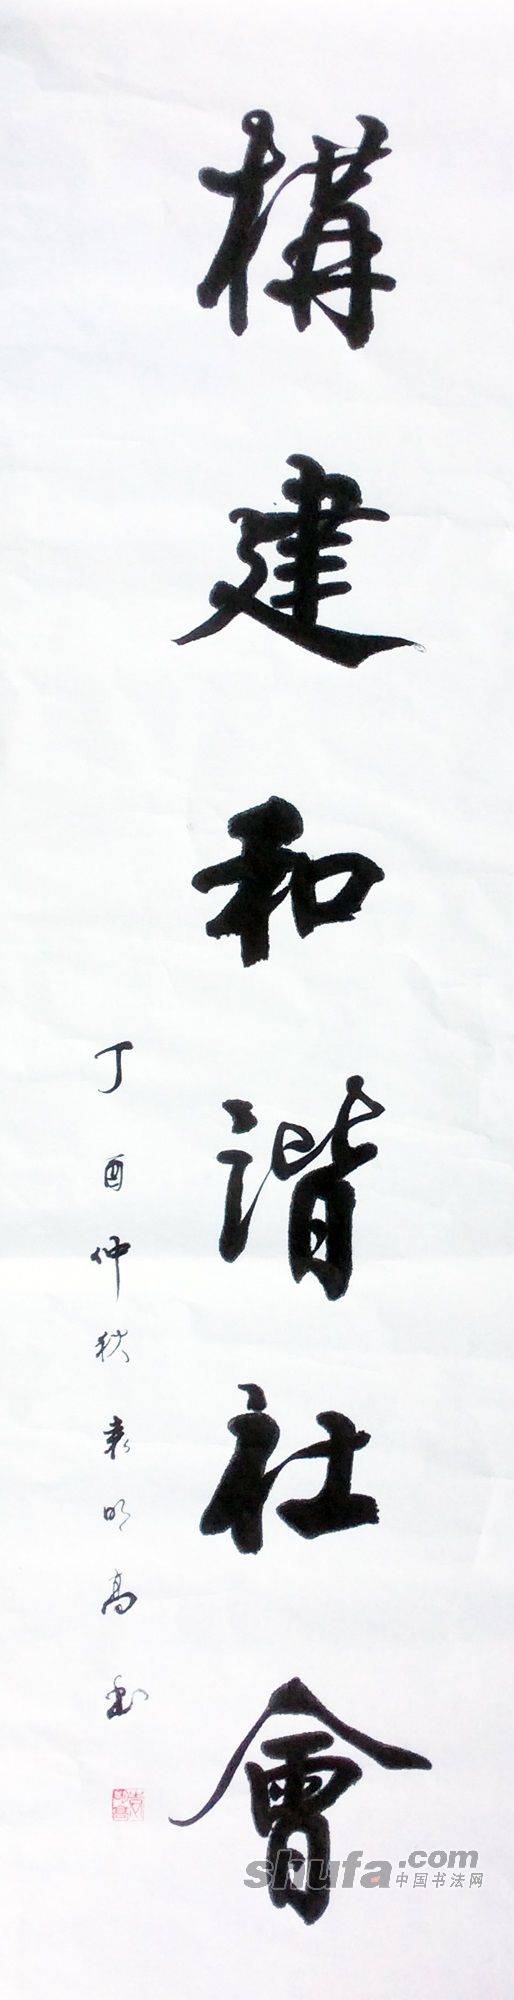 構建和諧社會
丁酉仲秋袁明高书
袁明高
shufa.com
中国书法网